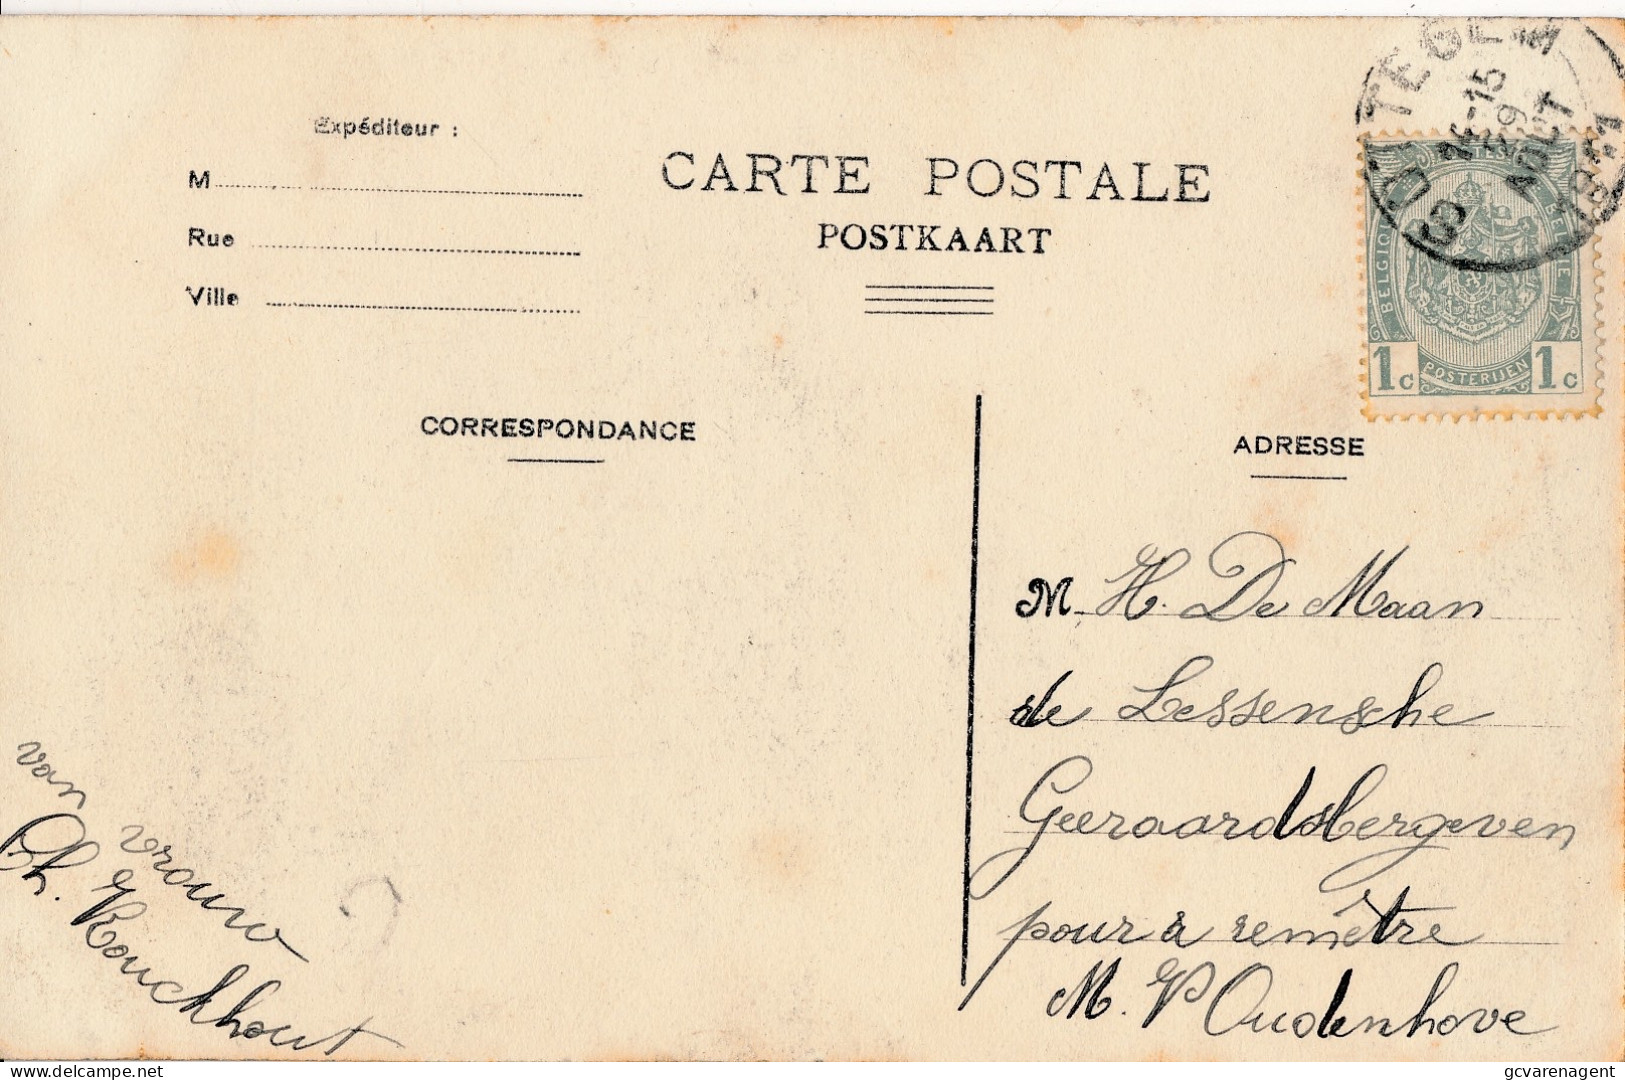 Expéditeur :
M
Rue
Ville
CARTE POSTALE
POSTKAART
14-15
29
AOUT
1911
BELGIQUE
BELGIE
1c POSTERIJEN 1c
CORRESPONDANCE
ADRESSE
M. H. De Maan
de Lessensche
Geeraardsbergeven
pour à remêtre
M. V Oudenhove
van
vrouw
Ch. Bouckhout
delcampe.net
gcvarenagent